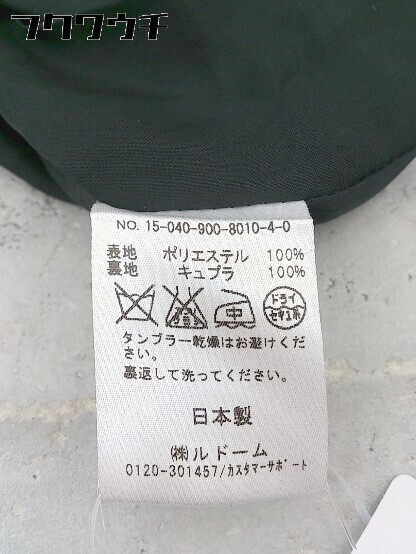 フクウウチ
NO. 15-040-900-8010-4-0
表地 ポリエステル 100%
裏地 キュプラ 100%
中 ドライ
セキユ系
タンブラー乾燥はお避けくだ
さい。
裏返して洗ってください。
日本製
㈱ルドーム
0120-301457/カスタマーサポート